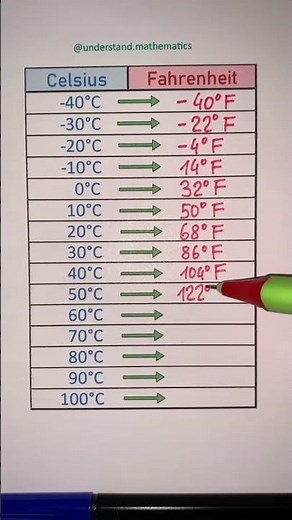 @understand.mathematics
Celsius Fahrenheit
-40°C → -40°F
-30°C → -22°F
-20°C → -4°F
-10°C → 14°F
0°C → 32°F
10°C → 50°F
20°C → 68°F
30°C → 86°F
40°C → 104°F
50°C → 122°
60°C →
70°C →
80°C →
90°C →
100°C →